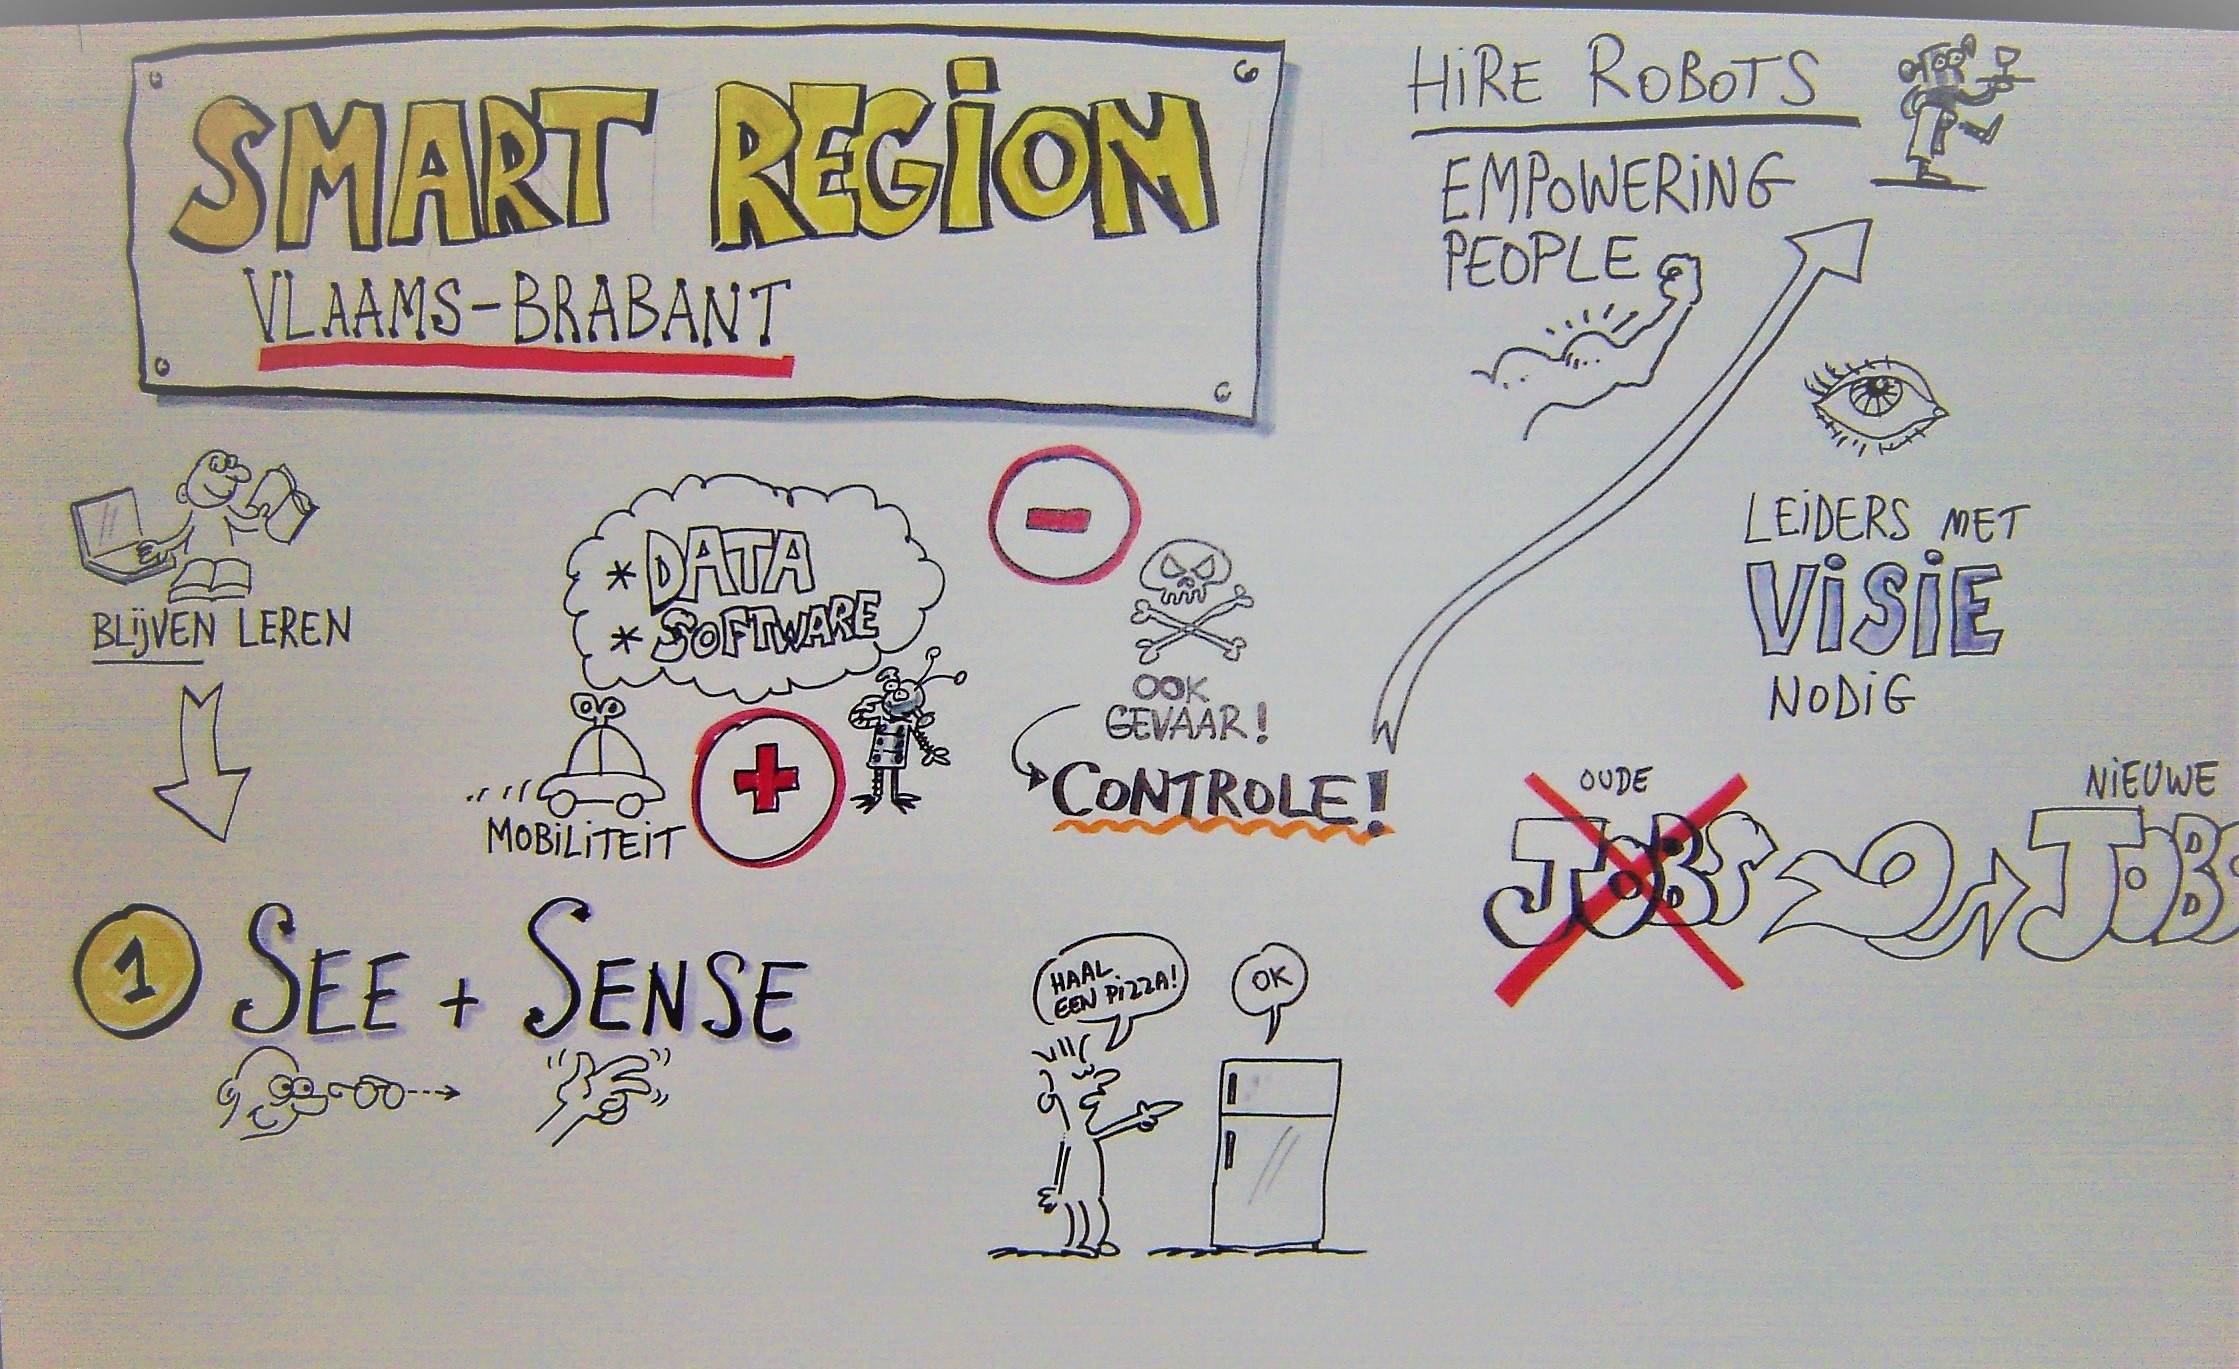 SMART REGION
VLAAMS-BRABANT
HIRE ROBOTS
EMPOWERING
PEOPLE
BLIJVEN LEREN
* DATA
* SOFTWARE
MOBILITEIT
+
-
OOK
GEVAAR!
CONTROLE!
LEIDERS MET
VISIE
NODIG
OUDE
JOBS
NIEUWE
JOBS
1 SEE + SENSE
HAAL
EEN PIZZA!
OK